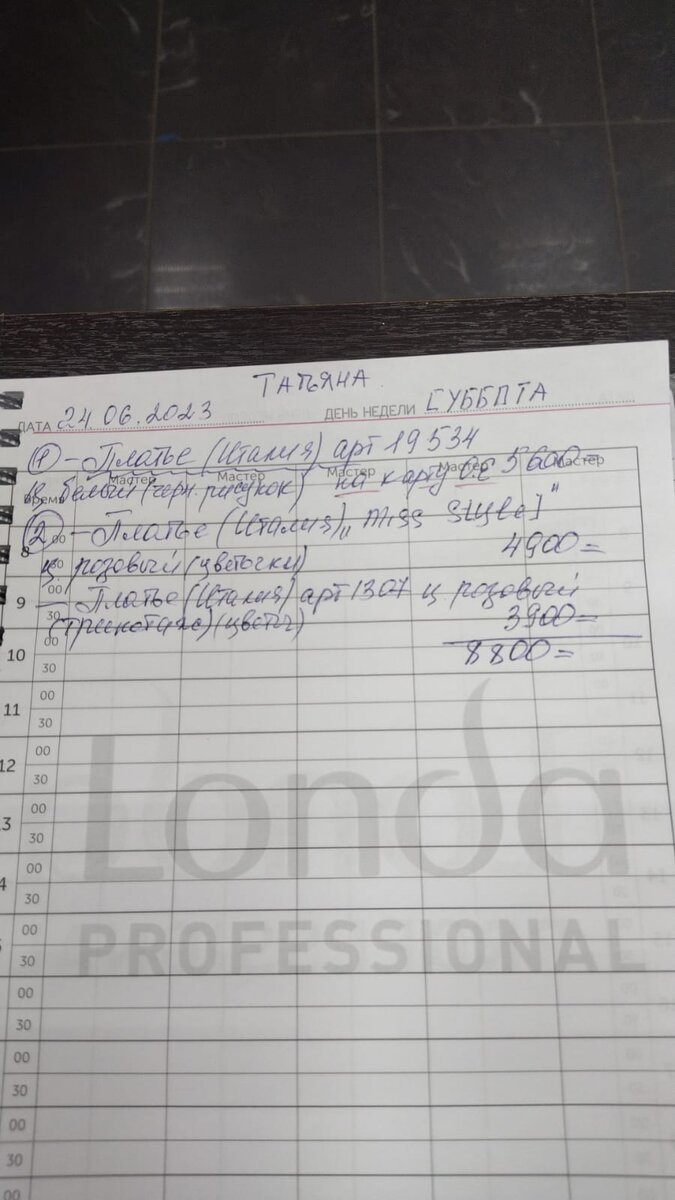 ТАТЬЯНА.
ДАТА 24.06.2023 ДЕНЬ НЕДЕЛИ СУББОТА
① - Платье (Италия) арт 19534
Мастер Мастер Мастер Мастер Мастер
ц. белый (черн. рисунок) на карту О.С 5600=
Время
② - Платье (Италия) „Miss Style"
8 00
4900=
ц. розовый (цветочки)
00
9 - Платье (Италия) арт 1307 ц розовый
(трикотаж) (цветы) 3900=
00
10 30 8800=
00
11 30
00
12 30
00
3 30
00
4 30
00
30
00
30
00
30
00
30
00
Londa
PROFESSIONAL